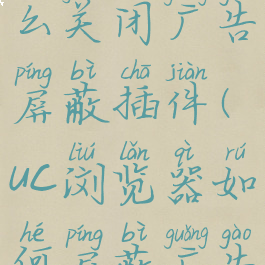 么关闭广告
píng bì chā jiàn
屏蔽插件(
liú lǎn qì rú
UC浏览器如
hé píng bì guǎng gào
何屏蔽广告